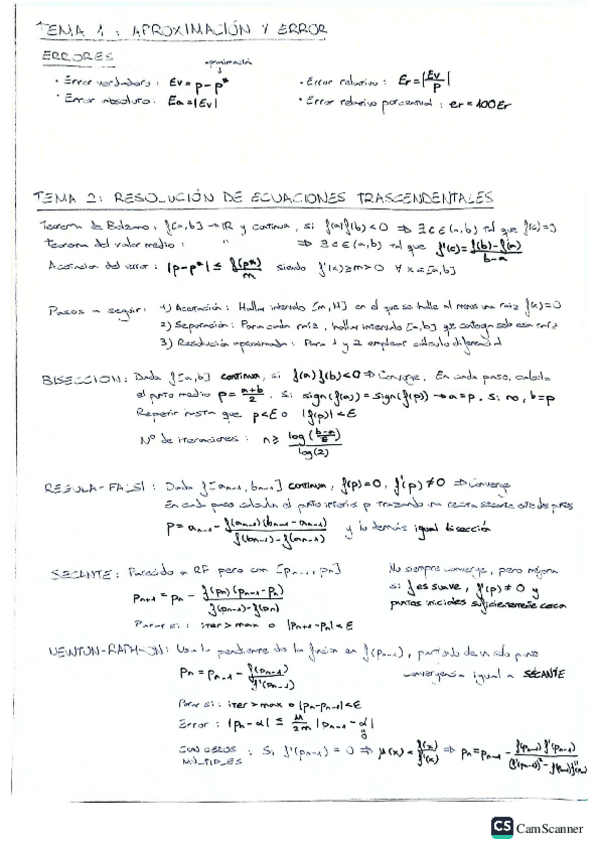 TEMA 1: APROXIMACIÓN Y ERROR
ERRORES
aproximación
· Error verdadero: Ev = p - p*
· Error absoluto: Ea = |Ev|
· Error relativo: Er = |Ev/p|
· Error relativo porcentual: er = 100Er
TEMA 2: RESOLUCIÓN DE ECUACIONES TRASCENDENTALES
Teorema de Bolzano: f[a,b] → IR y continua, si f(a)f(b) < 0 ⇒ ∃ c ∈ (a,b) tal que f(c)=0
Teorema del valor medio: " ⇒ ∃ c ∈ (a,b) tal que f'(c) = f(b)-f(a) / b-a
Acotación del error: |p-p*| ≤ f(p*)/m siendo f'(x) ≥ m > 0 ∀ x ∈ [a,b]
Pasos a seguir: 1) Acotación: Hallar intervalo [m, M] en el que se halle al menos una raíz f(x)=0
2) Separación: Para cada raíz, hallar intervalo [a,b] que contenga solo esa raíz
3) Resolución aproximada: Para 1 y 2 emplear cálculo diferencial
BISECCION: Dada f[a,b] continua, si f(a)f(b)<0 ⇒ Converge. En cada paso, calcula
el punto medio p = a+b/2. Si sign(f(a)) = sign(f(p)) → a=p. Si no, b=p
Repetir hasta que p<ε o |f(p)|<ε
Nº de iteraciones: n ≥ log(b-a/ε) / log(2)
REGULA-FALSI: Dada f[an-1, bn-1] continua, f(p)=0, f'(p) ≠ 0 ⇒ Converge
En cada paso calcula el punto interior p trazando una recta secante entre dos puntos
p = an-1 - f(an-1)(bn-1 - an-1) / f(bn-1) - f(an-1) y lo demás igual bisección
SECANTE: Parecido a RF pero con [pn-1, pn]
pn+1 = pn - f(pn)(pn-1-pn) / f(pn-1)-f(pn)
Parar si: iter>max o |pn+1-pn|<ε
No siempre converge, pero mejora
si f es suave, f'(p) ≠ 0 y
puntos iniciales suficientemente cerca
NEWTON-RAPHSON: Usa la pendiente de la función en f(pn-1), partiendo de un solo punto
pn = pn-1 - f(pn-1) / f'(pn-1)
convergencia igual a SECANTE
Parar si: iter>max o |pn-pn-1|<ε
Error: |pn-α| ≤ M/2m |pn-1-α|
CON CEROS MÚLTIPLES: Si f'(pn-1) = 0 ⇒ μ(x) = f(x)/f'(x) ⇒ pn = pn-1 - f(pn-1) f'(pn-1) / (f'(pn-1))² - f(pn-1)f''(pn-1)
CS CamScanner